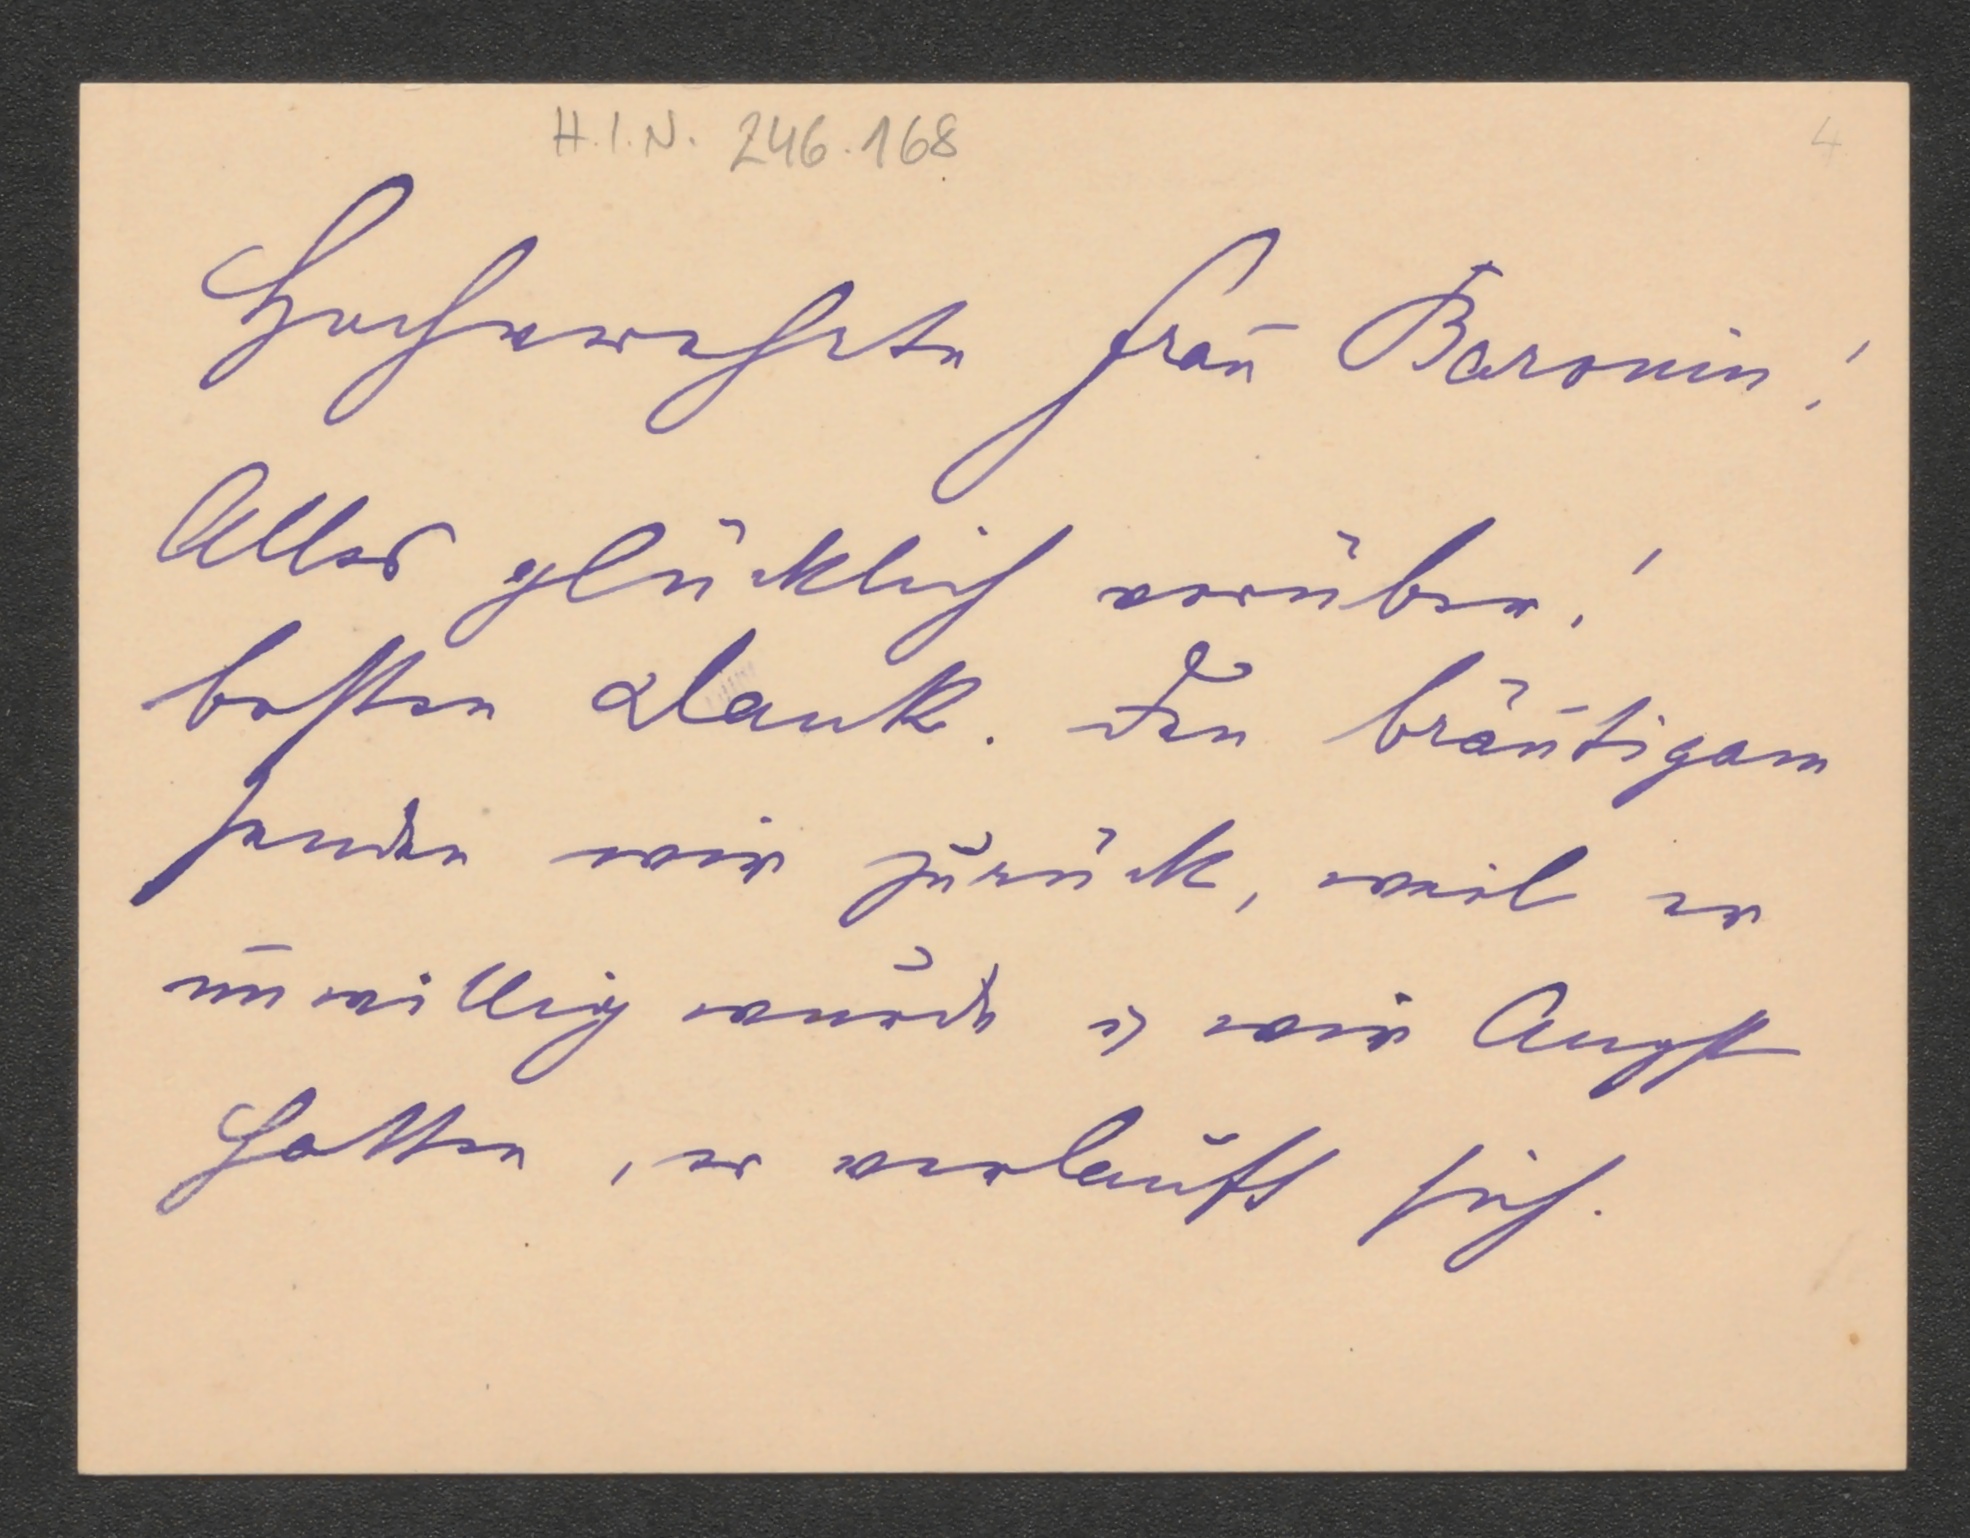 H.I.N. 246.168
4
Hochverehrte Frau Baronin!
Alles glücklich vorüber!
besten Dank. Den bräutigam
senden wir zurück, weil er
unwillig wurde u wir Angst
hatten, er verlauft sich.